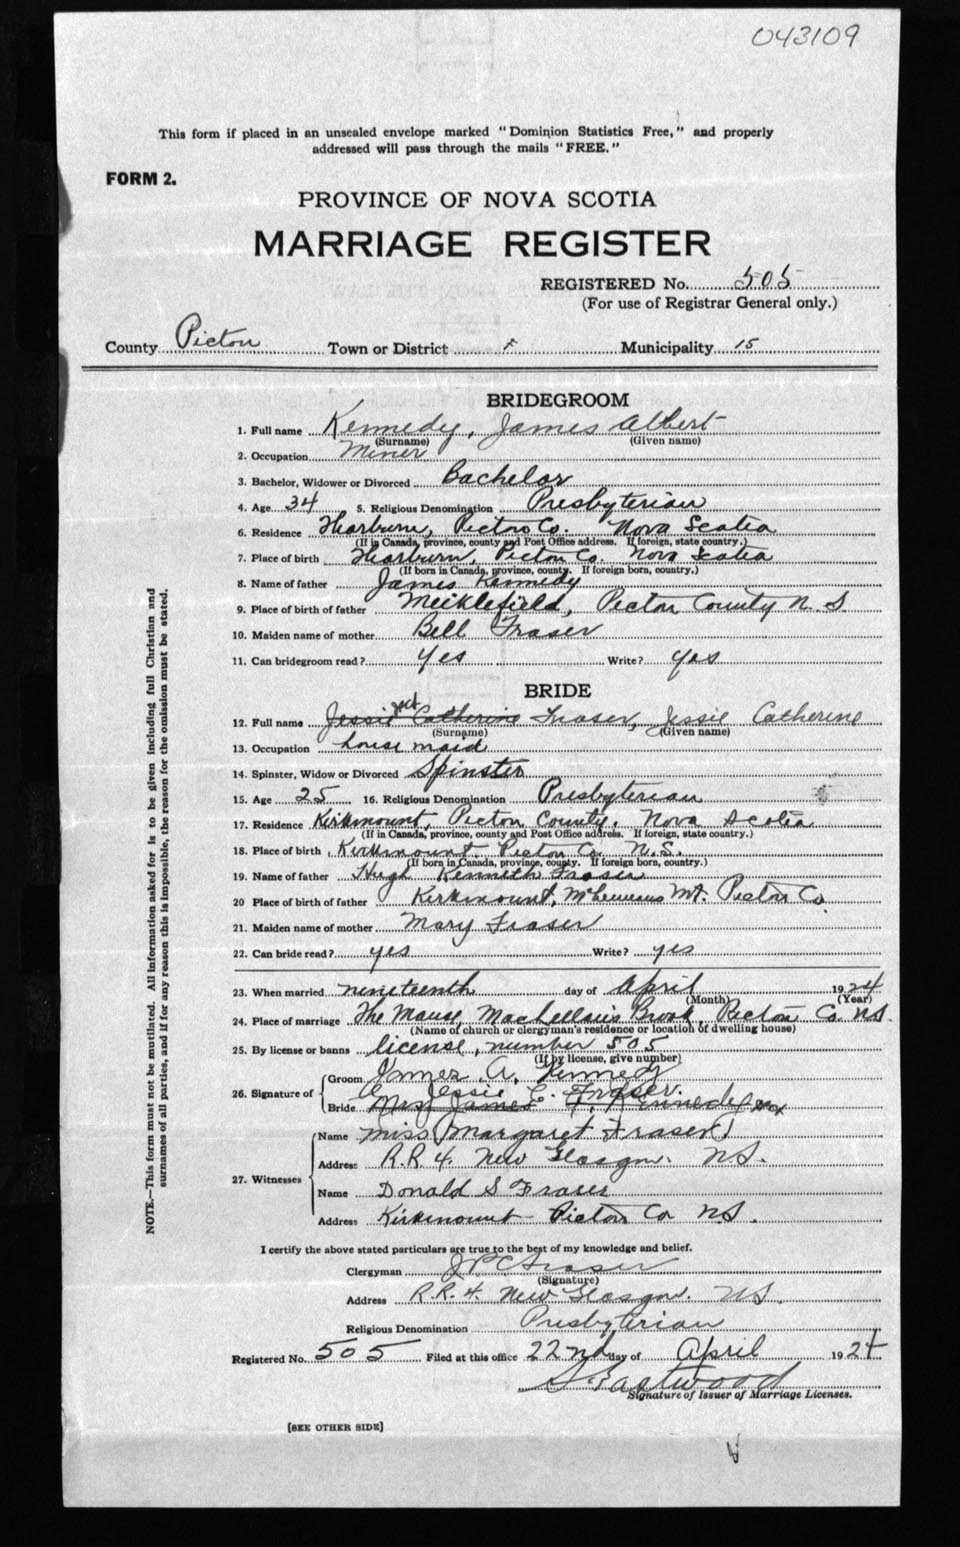 043109
This form if placed in an unsealed envelope marked "Dominion Statistics Free," and properly
addressed will pass through the mails "FREE."
FORM 2.
PROVINCE OF NOVA SCOTIA
MARRIAGE REGISTER
REGISTERED No. 505
(For use of Registrar General only.)
County Pictou Town or District Municipality 15
BRIDEGROOM
1. Full name Kennedy, James Albert
(Surname) (Given name)
2. Occupation Miner
3. Bachelor, Widower or Divorced Bachelor
4. Age 34 5. Religious Denomination Presbyterian
6. Residence Thorburn, Pictou Co. Nova Scotia
(If in Canada, province, county and Post Office address. If foreign, state country.)
7. Place of birth Thorburn, Pictou Co. Nova Scotia
(If born in Canada, province, county. If foreign born, country.)
8. Name of father James Kennedy
9. Place of birth of father Meiklefield, Pictou County N. S
10. Maiden name of mother Bell Fraser
11. Can bridegroom read? Yes Write? Yes
BRIDE
12. Full name Jessie Catherine Fraser, Jessie Catherine
(Surname) (Given name)
13. Occupation house maid
14. Spinster, Widow or Divorced Spinster
15. Age 25 16. Religious Denomination Presbyterian
17. Residence Kirkmount, Pictou County, Nova Scotia
(If in Canada, province, county and Post Office address. If foreign, state country.)
18. Place of birth Kirkmount Pictou Co. N.S.
(If born in Canada, province, county. If foreign born, country.)
19. Name of father Hugh Kenneth Fraser
20 Place of birth of father Kirkmount, Mt. Pictou Co.
21. Maiden name of mother Mary Fraser
22. Can bride read? yes Write? yes
23. When married nineteenth day of April 1924
(Month) (Year)
24. Place of marriage The Manse, MacLellan's Brook, Pictou Co. N.S.
(Name of church or clergyman's residence or location of dwelling house)
25. By license or banns license, number 505
(If by license, give number)
26. Signature of Groom James A. Kennedy
Jessie C. Fraser.
Bride Mrs James A. Kennedy
27. Witnesses Name Miss Margaret Fraser
Address R.R. 4. New Glasgow. N.S.
Name Donald S Fraser
Address Kirkmount Pictou Co N.S.
I certify the above stated particulars are true to the best of my knowledge and belief.
Clergyman Fraser
(Signature)
Address R.R. 4. New Glasgow. N.S.
Religious Denomination Presbyterian
Registered No. 505 Filed at this office 22nd day of April 1924
S. Eastwood
Signature of Issuer of Marriage Licenses.
[SEE OTHER SIDE]
NOTE.—This form must not be mutilated. All information asked for is to be given including full Christian and
surnames of all parties, and if for any reason this is impossible, the reason for the omission must be stated.